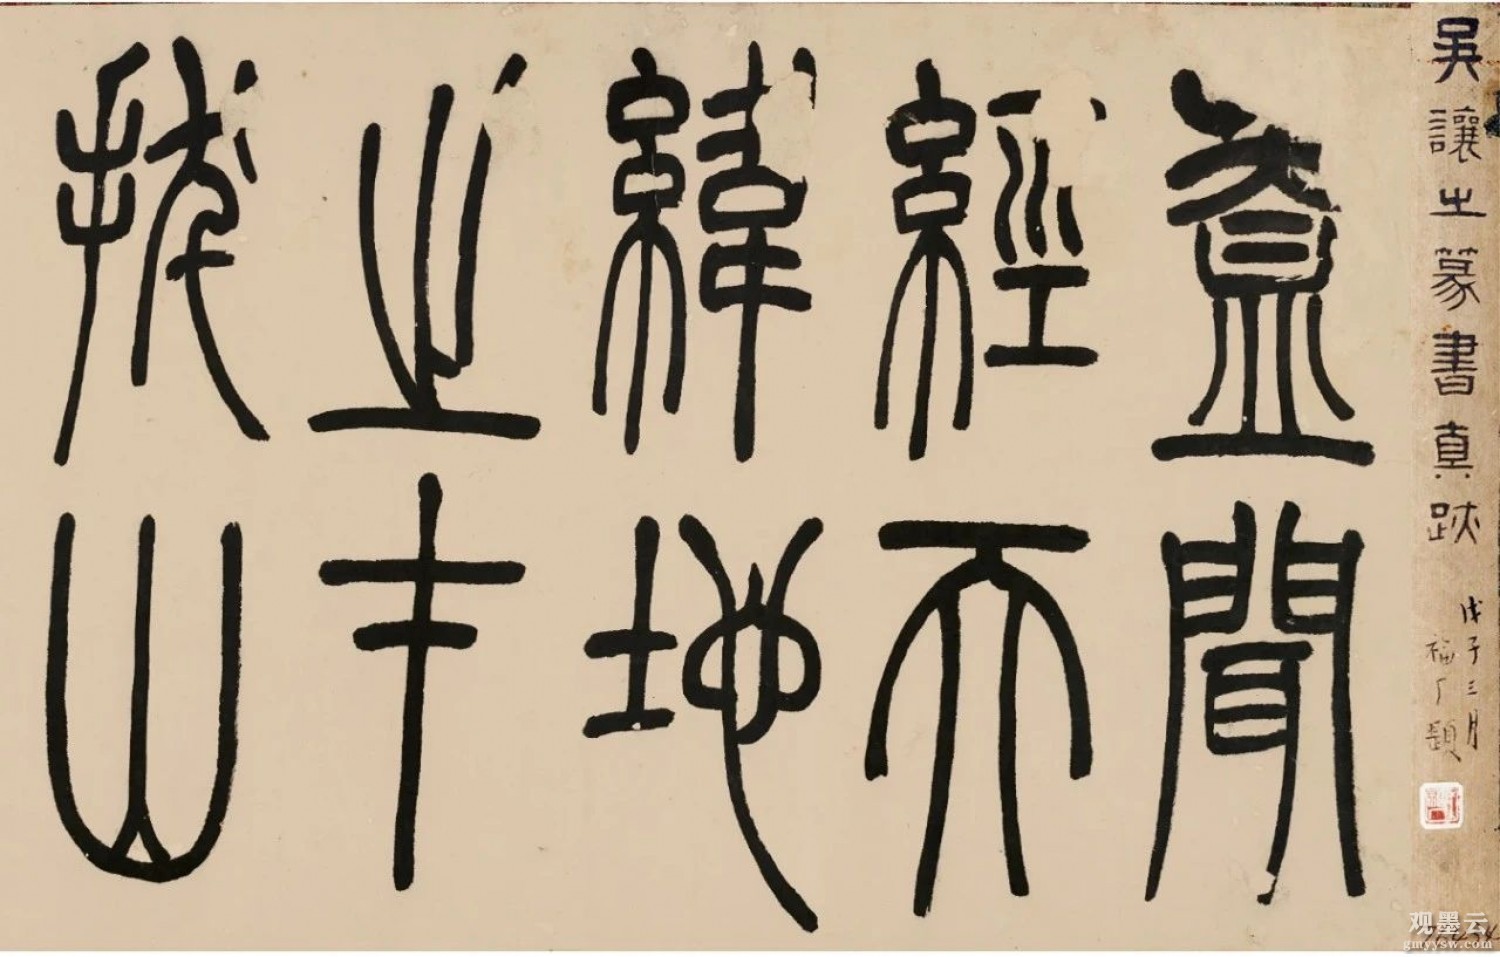 吳讓之篆書真跡
戊子三月
福厂題
蓋聞
經天
緯地
之才
拔山
观墨云
gmyysw.com